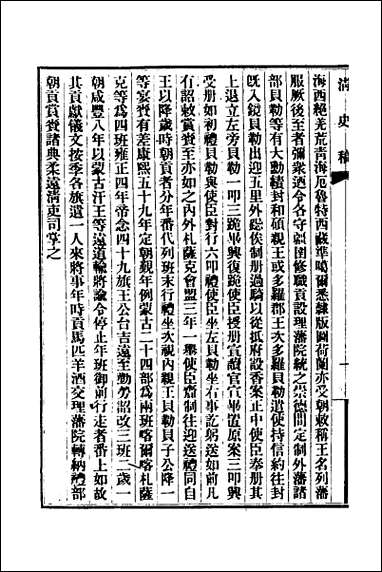 清史稿
海西絕尤荒青海厄魯特西藏準噶爾悉隸版圖荷蘭亦受朝敕稱王名列藩
服厥後至者彌衆迺令各守疆圉修職貢設理藩院統之崇德間定制外藩諸
部貝勒等有大勳績封和碩親王或多羅郡王次多羅貝勒遣使持信約往封
既入鏡貝勒出迎五里外聽俟制册過騎以從抵府設香案正中使臣奉册其
上退立左旁貝勒一叩三跪畢興復跪使臣授册宣讀官宣畢置原案三叩興
受册如初禮貝勒與使臣對行六叩禮使臣坐左貝勒坐右事訖躬送如前凡
有詔敕賞賚至亦如之內外札薩克會盟三年一舉使臣齎制往迎送禮同自
王以降歲時朝貢者分年番代列班末行禮坐次視內親王貝勒貝子公降一
等宴賚有差康熙五十九年定朝覲年例蒙古二十四部爲兩班喀爾喀札薩
克等爲四班雍正四年帝念四十九旗王公台吉遠至勤勞詔改三班二歲一
朝咸豐八年以蒙古汗王等遠道輸將諭令停止年班御前行走者番上如故
其貢獻儀文按季各旗遣一人來將事年時貢馬匹羊酒交理藩院轉納禮部
朝貢賞賚諸典柔遠淸吏司掌之